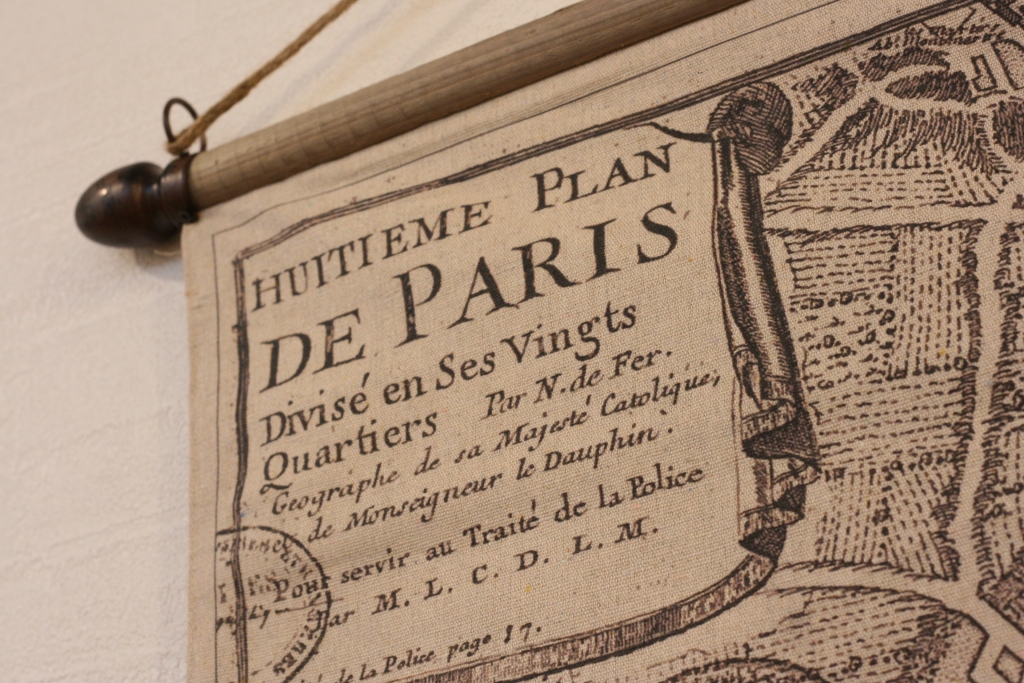 HUITIEME PLAN
DE PARIS
Divisé en Ses Vingts
Quartiers Par N. de Fer.
Geographe de sa Majesté Catolique,
de Monseigneur le Dauphin.
Pour servir au Traité de la Police
Par M. L. C. D. L. M.
de la Police page 87.